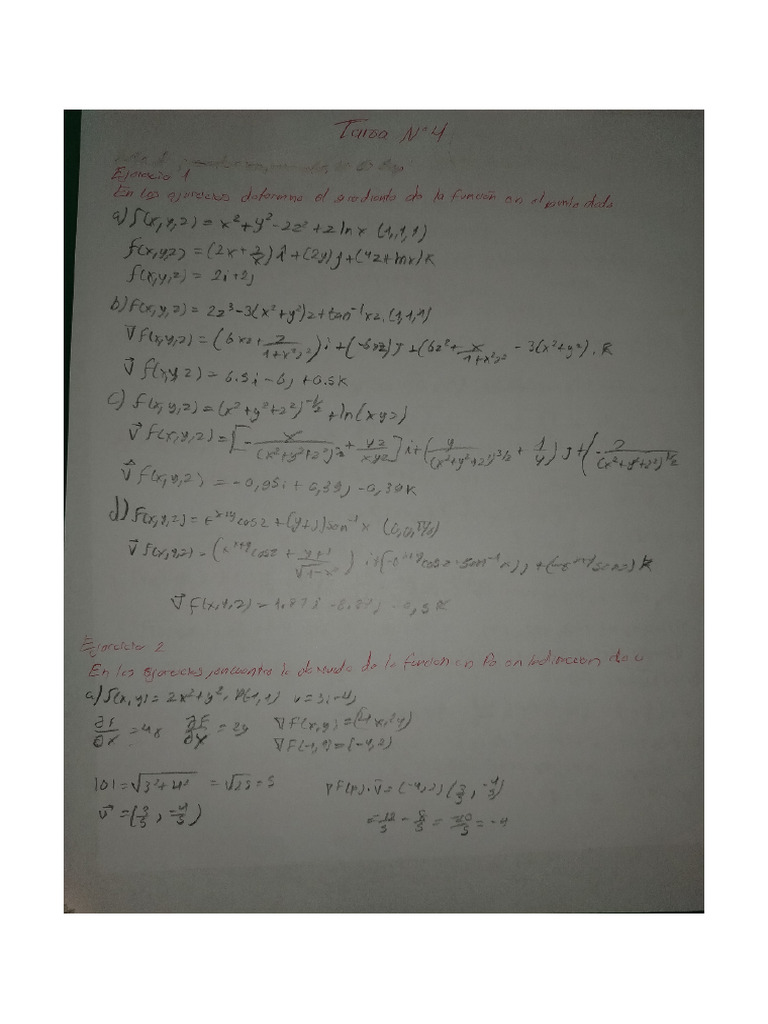 Tarea N°4
Ejercicio 1
En los ejercicios determine el gradiente de la función en el punto dado
a) f(x,y,z) = x²+y²-2z²+z ln x (1,1,1)
f(x,y,z) = (2x+z/x)i+(2y)j+(4z+lnx)k
f(x,y,z) = 2i+2j
b) f(x,y,z) = 2z³-3(x²+y²)z+tan⁻¹xz. (1,1,1)
∇f(x,y,z) = (6xz+z/(1+x²z²))i+(-6xz)j+(6z²+x/(1+x²z²) -3(x²+y²).k
∇f(x,y,z) = 6.5i-6j+0.5k
c) f(x,y,z) = (x²+y²+z²)^(-1/2)+ln(xyz)
∇f(x,y,z) = [-x/(x²+y²+z²)+yz/xyz]i+(y/(x²+y²+z²)^(3/2)+1/y)j+(-z/(x²+y²+z²)^(3/2)
∇f(x,y,z) = -0,95i+0,39j-0,39k
d) f(x,y,z) = e^(x+y) cosz+(y+1)sen⁻¹x
∇f(x,y,z) =
∇f(x,y,z) =
Ejercicio 2
En los ejercicios, encuentre la derivada de la función en Po en la dirección de u
a) f(x,y) = 2x²+y², P(-1,1) u=3i-4j
∂f/∂x = 4x ∂f/∂y = 2y ∇f(x,y) = (4x,2y)
∇f(-1,1) = (-4,2)
|u| = √(3²+4²) = √25 = 5 ∇f(P)·v = (-4,2)(3/5,-4/5)
v = (3/5,-4/5) = -12/5 - 8/5 = -20/5 = -4